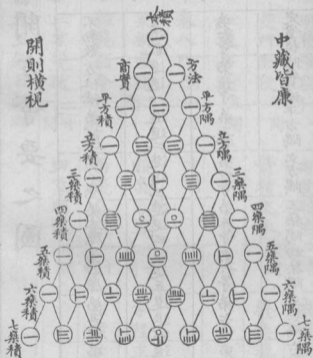 中藏皆廉
開則橫視
本積
商實
方法
平方積
平方隅
立方積
立方隅
三乘積
三乘隅
四乘積
四乘隅
五乘積
六乘積
六乘隅
七乘積
七乘隅